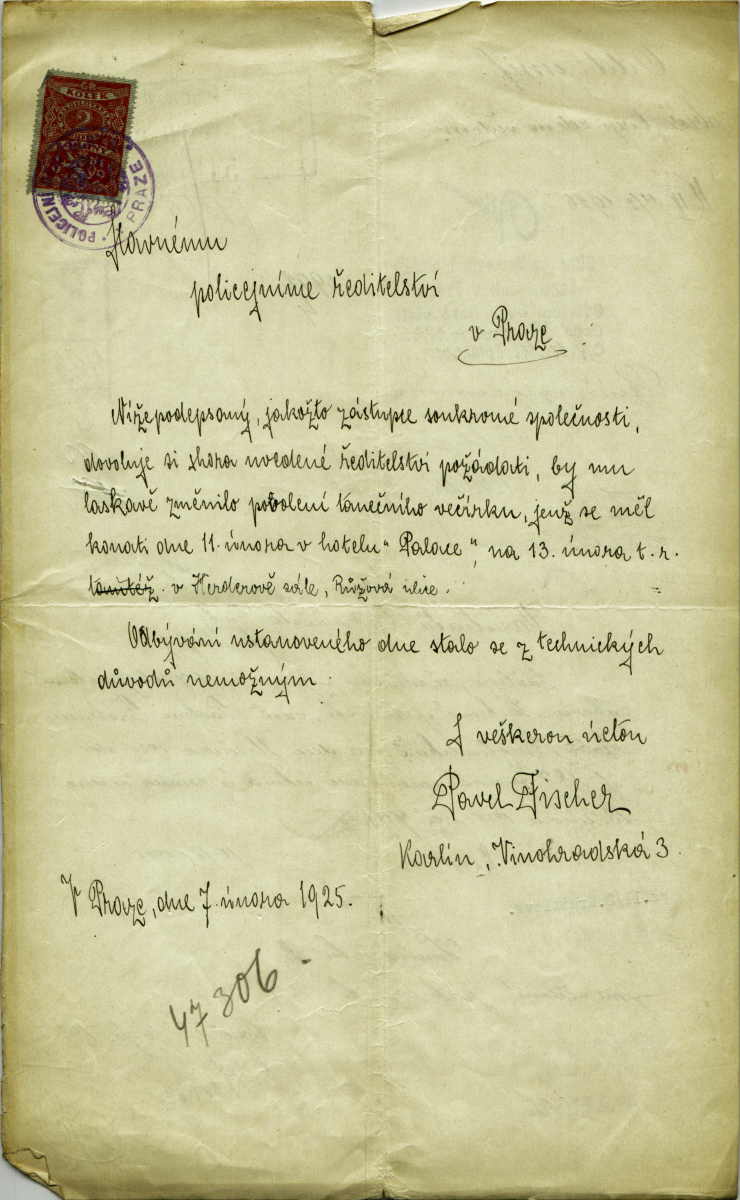 KOLEK
2
POLICEJNÍ
PRAZE
Slavnému
policejníme ředitelství
v Praze
Nížepodepsaný, jakožto zástupce soukromé společnosti,
dovoluje si shora uvedené ředitelství požádati, by mu
laskavě změnilo povolení tanečního večírku, jenž se měl
konati dne 11. února v hotelu "Palace", na 13. února t. r.
v Herderově sále, Růžová ulice.
Odbývání ustanoveného dne stalo se z technických
důvodů nemožným.
S veškerou úctou
Pavel Fischer
Karlín, Vinohradská 3.
V Praze, dne 7. února 1925.
47306